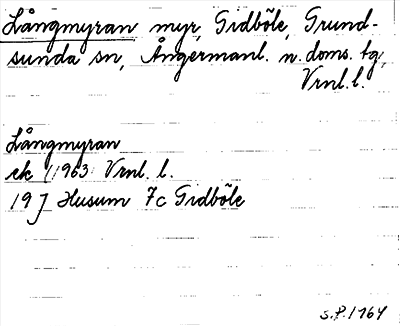 Långmyran myr, Gidböle, Grund-
sunda sn, Ångermanl. n. doms. tg,
Vrnl. l.
Långmyran
ek (1963) Vrnl. l.
19 J Husum 7c Gidböle
S.P. 1964